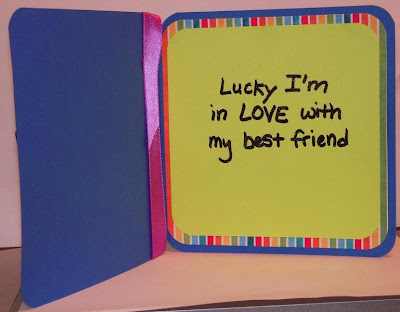 Lucky I'm
in LOVE with
my best friend